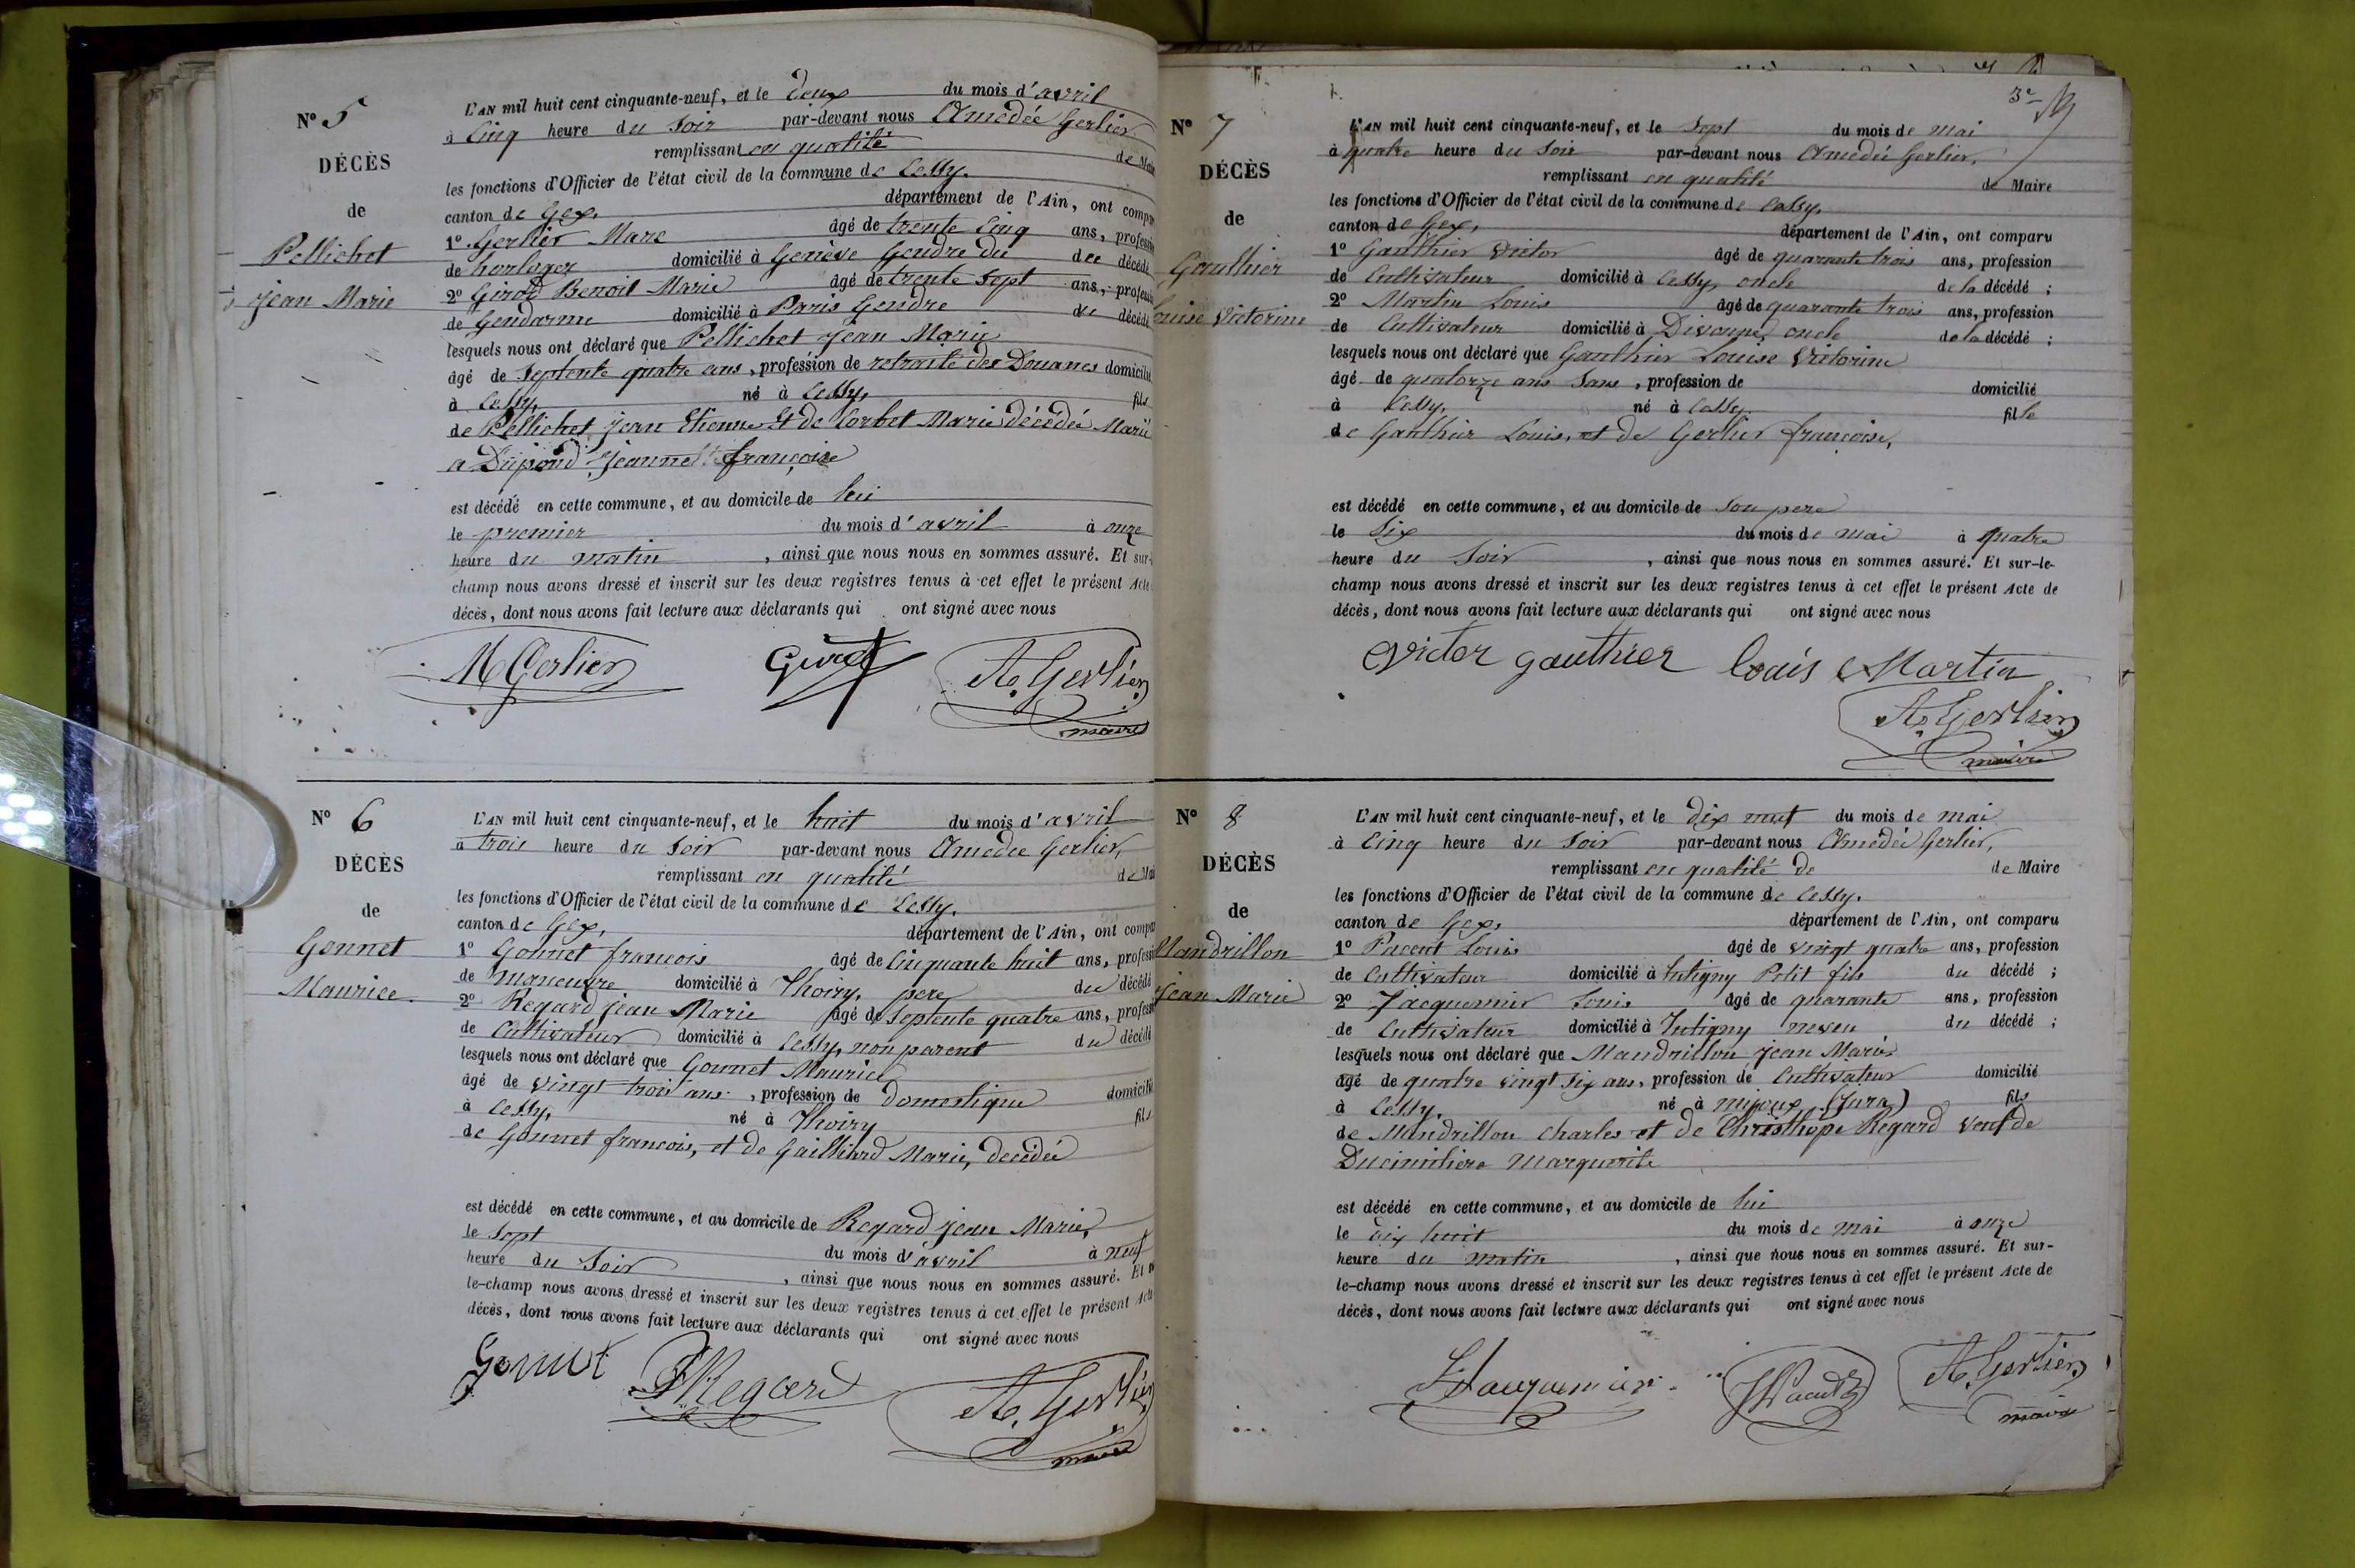 N° 5
DÉCÈS
de
Pellichet
Jean Marie
L'AN mil huit cent cinquante-neuf, et le deux du mois d'avril
à Cinq heure du Soir par-devant nous Amédée Gerlier
remplissant en qualité de Maire
les fonctions d'Officier de l'état civil de la commune de Cessy.
canton de Gex, département de l'Ain, ont compa
1° Gerlier Marc âgé de trente Cinq ans, professi
de horloger domicilié à Genève Gendre du du décédé
2° Girod Benoit Marie âgé de trente Sept ans, professi
de Gendarme domicilié à Paris Gendre du décédé
lesquels nous ont déclaré que Pellichet Jean Marie
âgé de Septente quatre ans, profession de retraité des Douanes domicilié
à Cessy, né à Cessy, fils
de Pellichet Jean Etienne Et de Corbet Marie décédée Marié
a Dupond Jeanne françoise
est décédé en cette commune, et au domicile de lui
le premier du mois d'avril à onze
heure du matin, ainsi que nous nous en sommes assuré. Et sur-
champ nous avons dressé et inscrit sur les deux registres tenus à cet effet le présent Acte
décès, dont nous avons fait lecture aux déclarants qui ont signé avec nous
M Gerlier Girod A. Gerlier
maire
N° 6
DÉCÈS
de
Gonnet
Maurice.
L'AN mil huit cent cinquante-neuf, et le huit du mois d'avril
à trois heure du Soir par-devant nous Amédée Gerlier,
remplissant en qualité de Mai
les fonctions d'Officier de l'état civil de la commune de Cessy.
canton de Gex, département de l'Ain, ont compa
1° Gonnet françois âgé de Cinquante huit ans, professi
de Maneuvre domicilié à Thoiry, pere du décédé
2° Regard Jean Marie âgé de Septente quatre ans, professi
de Cultivateur domicilié à Cessy, non parent du décédé
lesquels nous ont déclaré que Gonnet Maurice
âgé de vingt trois ans, profession de domestique domicilié
à Cessy, né à Thoiry fils
de Gonnet françois, et de Gailliard Marie, décédée
est décédé en cette commune, et au domicile de Regard Jean Marie,
le Sept du mois d'avril à neuf
heure du Soir, ainsi que nous nous en sommes assuré. Et
le-champ nous avons dressé et inscrit sur les deux registres tenus à cet effet le présent Acte
décès, dont nous avons fait lecture aux déclarants qui ont signé avec nous
Gonnet Regard A. Gerlier
maire
3e
N° 7
DÉCÈS
de
Gauthier
ouise Victorine
L'AN mil huit cent cinquante-neuf, et le Sept du mois de mai
à quatre heure du Soir par-devant nous Amédée Gerlier,
remplissant en qualité de Maire
les fonctions d'Officier de l'état civil de la commune de Cessy,
canton de Gex, département de l'Ain, ont comparu
1° Gauthier Victor âgé de quarante trois ans, profession
de Cultivateur domicilié à Cessy, oncle de la décédé ;
2° Martin Louis âgé de quarante trois ans, profession
de Cultivateur domicilié à Divonne, oncle de la décédé ;
lesquels nous ont déclaré que Gauthier Louise Victorine
âgé de quatorze ans Sans, profession de domicilié
à Cessy, né à Cessy. fille
de Gauthier Louis, et de Gerlier françoise,
est décédé en cette commune, et au domicile de Son pere
le Six du mois de mai à quatre
heure du Soir, ainsi que nous nous en sommes assuré. Et sur-le-
champ nous avons dressé et inscrit sur les deux registres tenus à cet effet le présent Acte de
décès, dont nous avons fait lecture aux déclarants qui ont signé avec nous
Victor gauthier Louis Martin
A. Gerlier
maire
N° 8
DÉCÈS
de
Mandrillon
Jean Marie
L'AN mil huit cent cinquante-neuf, et le dix neuf du mois de mai
à Cinq heure du Soir par-devant nous Amédée Gerlier,
remplissant en qualité de de Maire
les fonctions d'Officier de l'état civil de la commune de Cessy.
canton de Gex, département de l'Ain, ont comparu
1° Louis âgé de vingt quatre ans, profession
de Cultivateur domicilié à Tutigny Petit fils du décédé ;
2° Jacquemier Louis âgé de quarante ans, profession
de Cultivateur domicilié à Tutigny neveu du décédé ;
lesquels nous ont déclaré que Mandrillon Jean Marie
âgé de quatre vingt Six ans, profession de Cultivateur domicilié
à Cessy. né à mijoux (Jura) fils
de Mandrillon Charles et de Christhope Regard veuf de
Ducimitiere Marguerite
est décédé en cette commune, et au domicile de lui
le dix huit du mois de mai à onze
heure du matin, ainsi que nous nous en sommes assuré. Et sur-
le-champ nous avons dressé et inscrit sur les deux registres tenus à cet effet le présent Acte de
décès, dont nous avons fait lecture aux déclarants qui ont signé avec nous
Jacquemier A. Gerlier
maire